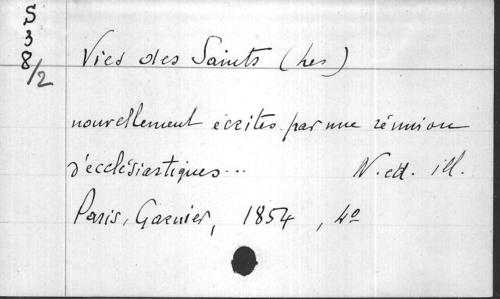 S
3
8/2
Vies des Saints (Les)
nouvellement écrites par une réunion
d'ecclésiastiques... N. ed. ill.
Paris, Garnier, 1854, 4º